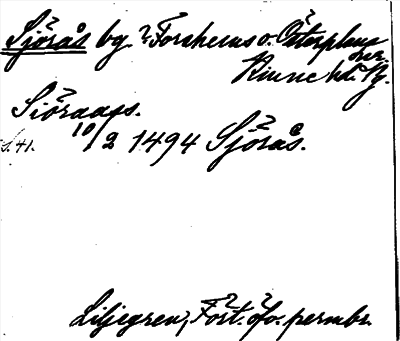 Sjörås by ? Forshems o. Österplana
snr. Kinne hd. Vg.
Siöraaas.
s. 41. 10/2 1494 Sjörås.
Liljegren, Fört. öfv. permbr.